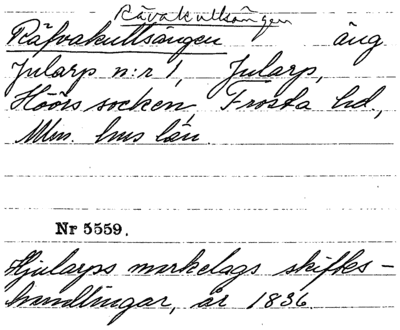 Rävakullsängen
Räfvakullsängen äng
Jularp n:r 1, Jularp,
Höörs socken, Frosta hd.,
Mlm. hus län.
Nr 5559.
Hjularps markelags skiftes-
handlingar, år 1836.